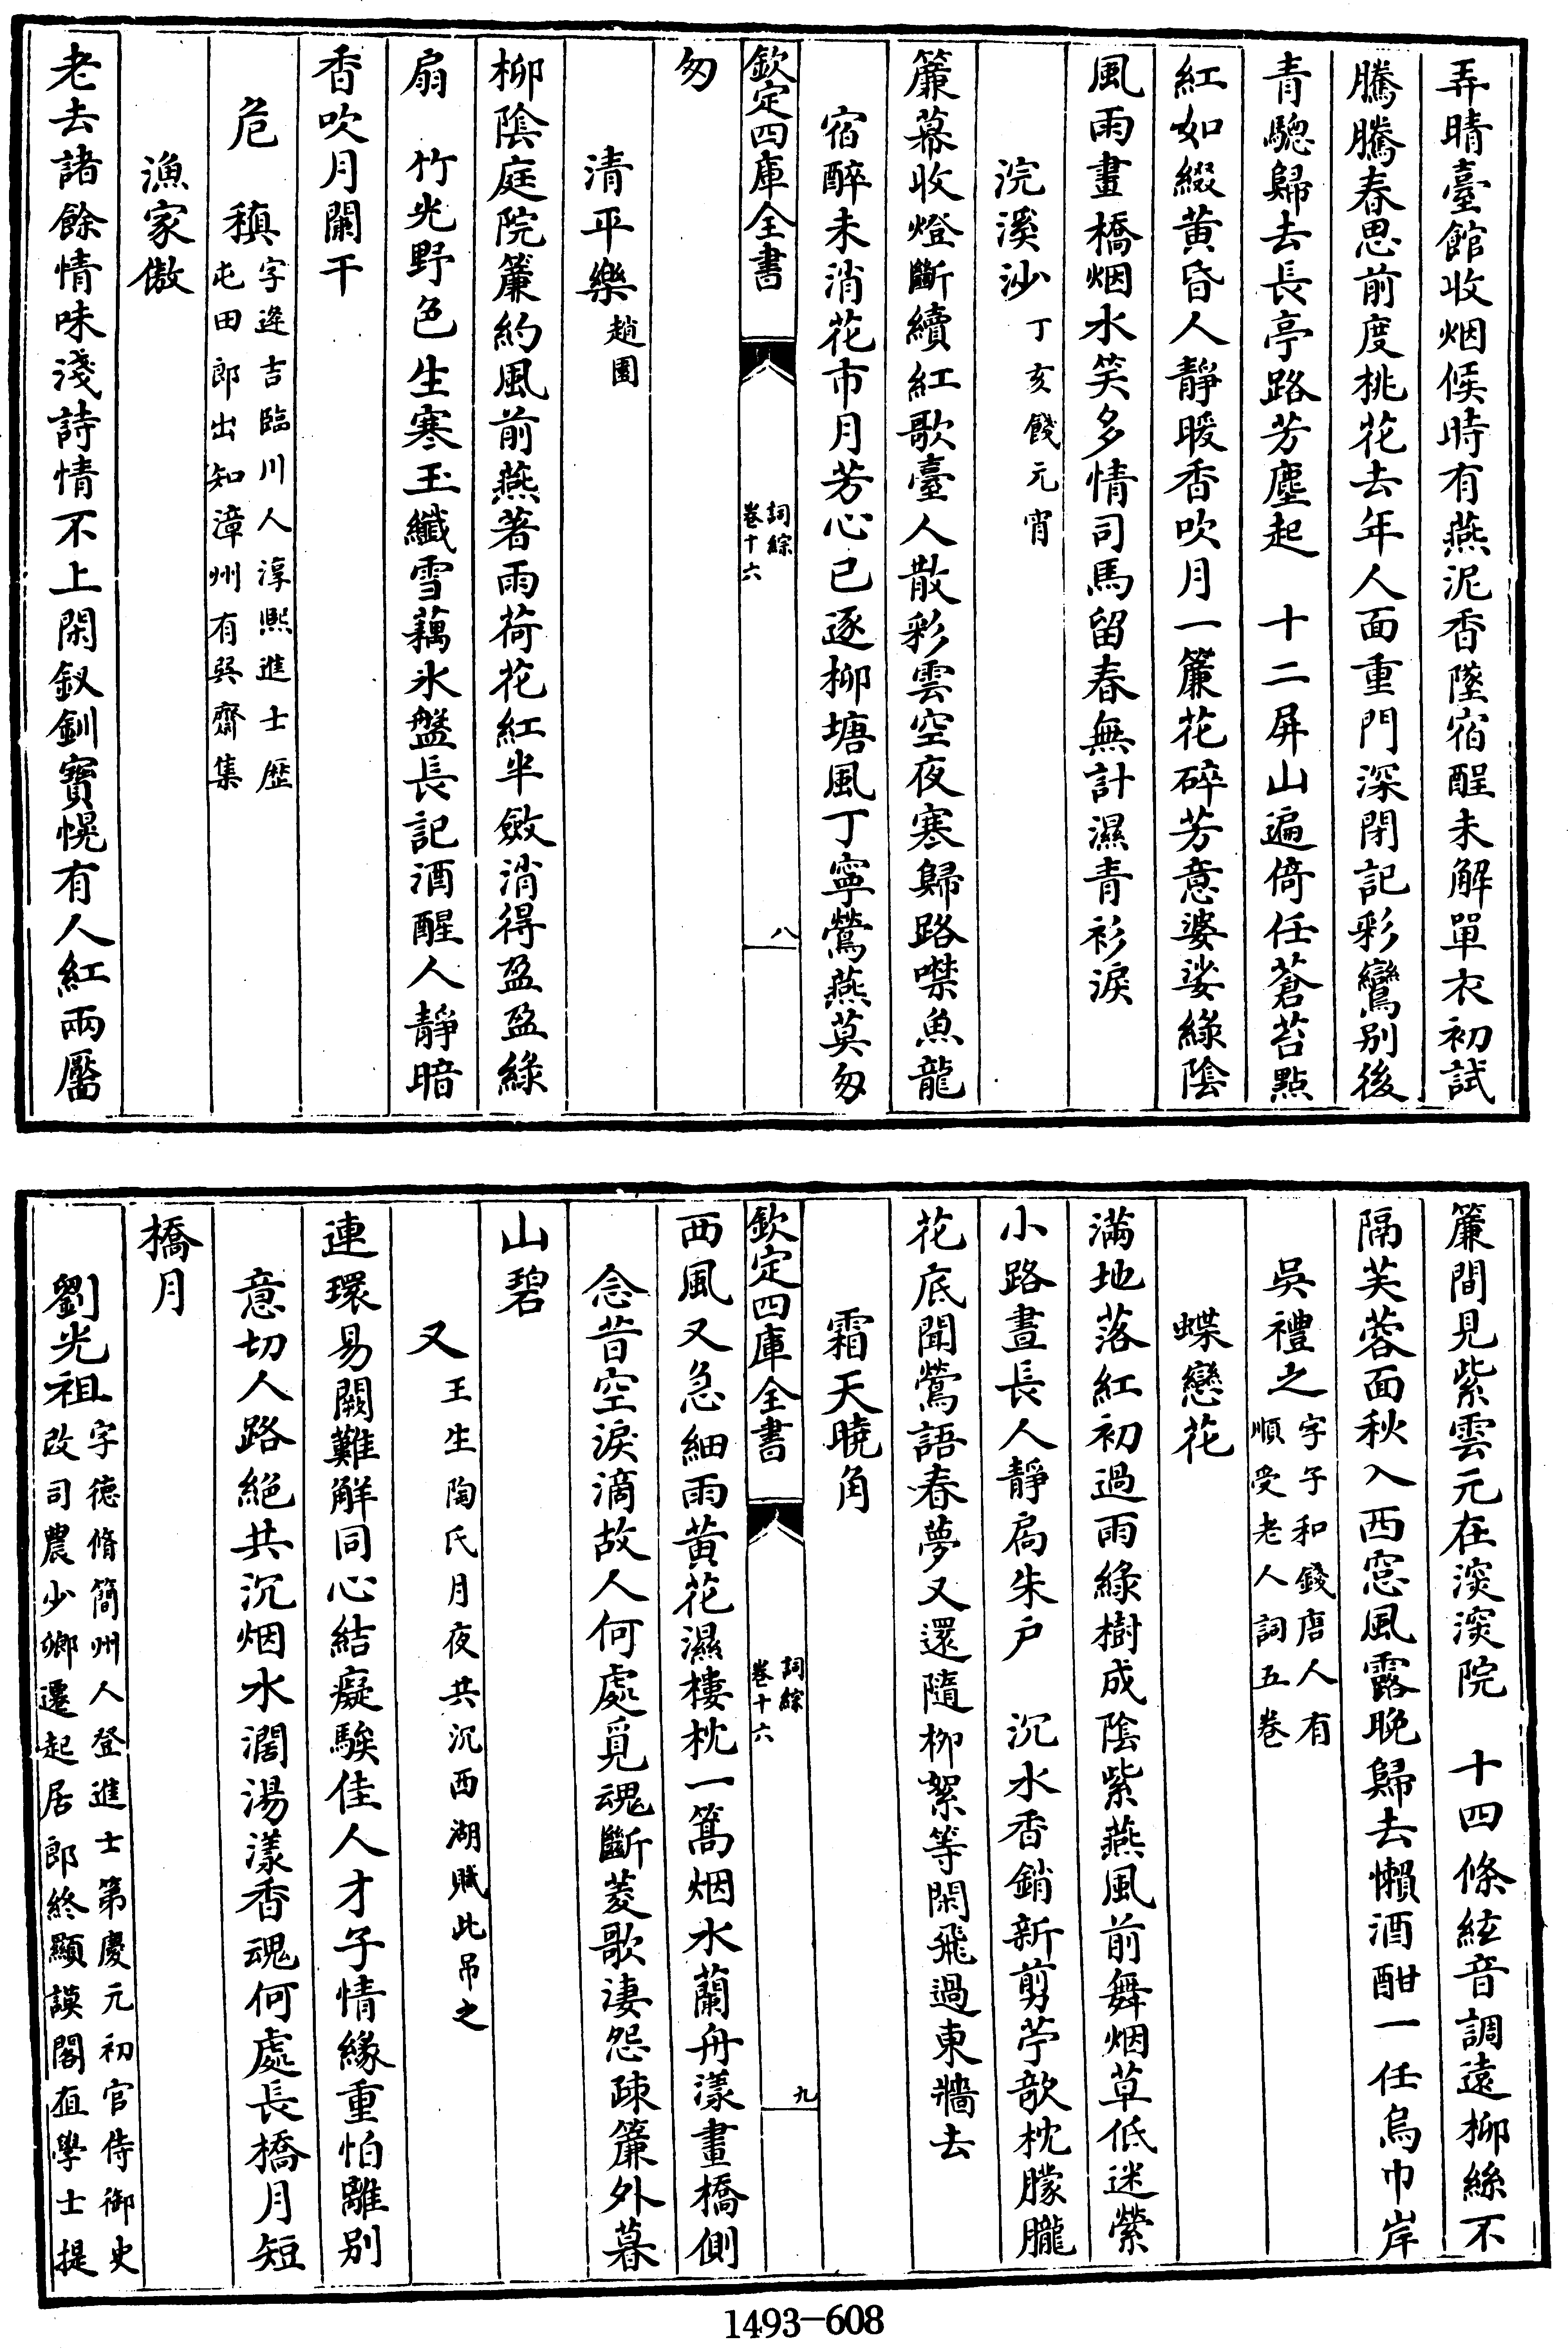 弄晴臺館收烟候時有燕泥香墜宿酲未解單衣初試
騰騰春思前度桃花去年人面重門深閉記彩鸞别後
青驄歸去長亭路芳塵起　十二屏山遍倚任蒼苔點
紅如綴黄昏人靜暖香吹月一簾花碎芳意婆娑綠陰
風雨畫橋烟水笑多情司馬留春無計濕青衫淚
浣溪沙丁亥餞元宵
簾幕收燈斷續紅歌臺人散彩雲空夜寒歸路噤魚龍
宿醉未消花市月芳心已逐柳塘風丁寧鶯燕莫匆
欽定四庫全書
詞綜
卷十六
八
匆
清平樂趙園
柳陰庭院簾約風前燕著雨荷花紅半斂消得盈盈綠
扇　竹光野色生寒玉纖雪藕氷盤長記酒醒人靜暗
香吹月闌干
危　稹字逢吉臨川人淳熙進士歷
屯田郎出知漳州有巽齋集
漁家傲
老去諸餘情味淺詩情不上閑釵釧寳幌有人紅兩靨
簾間見紫雲元在深深院　十四條絃音調遠柳絲不
隔芙蓉面秋入西窓風露晚歸去懶酒酣一任烏巾岸
吳禮之字子和錢唐人有
順受老人詞五卷
蝶戀花
滿地落紅初過雨綠樹成陰紫燕風前舞烟草低迷縈
小路晝長人靜扃朱户　沉水香銷新剪苧欹枕朦朧
花底聞鶯語春夢又還隨柳絮等閑飛過東牆去
霜天曉角
欽定四庫全書
詞綜
卷十六
九
西風又急細雨黄花濕樓枕一篙烟水蘭舟漾畫橋側
念昔空淚滴故人何處覓魂斷菱歌淒怨疎簾外暮
山碧
又王生陶氏月夜共沉西湖賦此吊之
連環易闕難解同心結癡騃佳人才子情緣重怕離别
意切人路絕共沉烟水濶湯漾香魂何處長橋月短
橋月
劉光祖字德脩簡州人登進士第慶元初官侍御史
改司農少卿遷起居郎終顯謨閣直學士提
1493-608